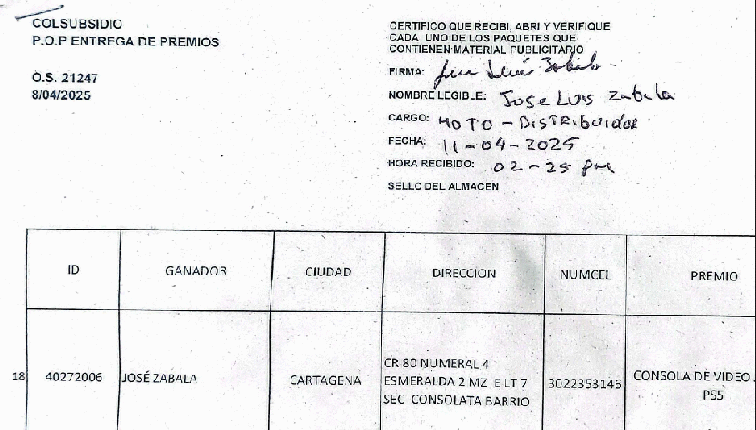 COLSUBSIDIO
P.O.P ENTREGA DE PREMIOS
O.S. 21247
8/04/2025
CERTIFICO QUE RECIBI, ABRI Y VERIFIQUE
CADA UNO DE LOS PAQUETES QUE
CONTIENEN MATERIAL PUBLICITARIO
FIRMA: Jose Luis Zabala
NOMBRE LEGIBLE: Jose Luis Zabala
CARGO: MOTO - DistRibuidor
FECHA: 11-04-2025
HORA RECIBIDO: 02-25 pm
SELLO DEL ALMACEN
ID GANADOR CIUDAD DIRECCION NUMCEL PREMIO
18 40272006 JOSÉ ZABALA CARTAGENA CR 80 NUMERAL 4
ESMERALDA 2 MZ E LT 7
SEC CONSOLATA BARRIO 3022353145 CONSOLA DE VIDEO
PS5